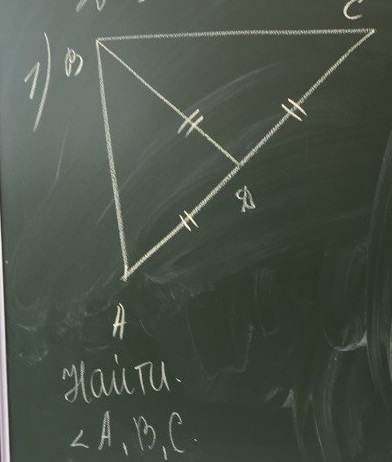 1)
B
C
D
A
Найти.
∠A, B, C.